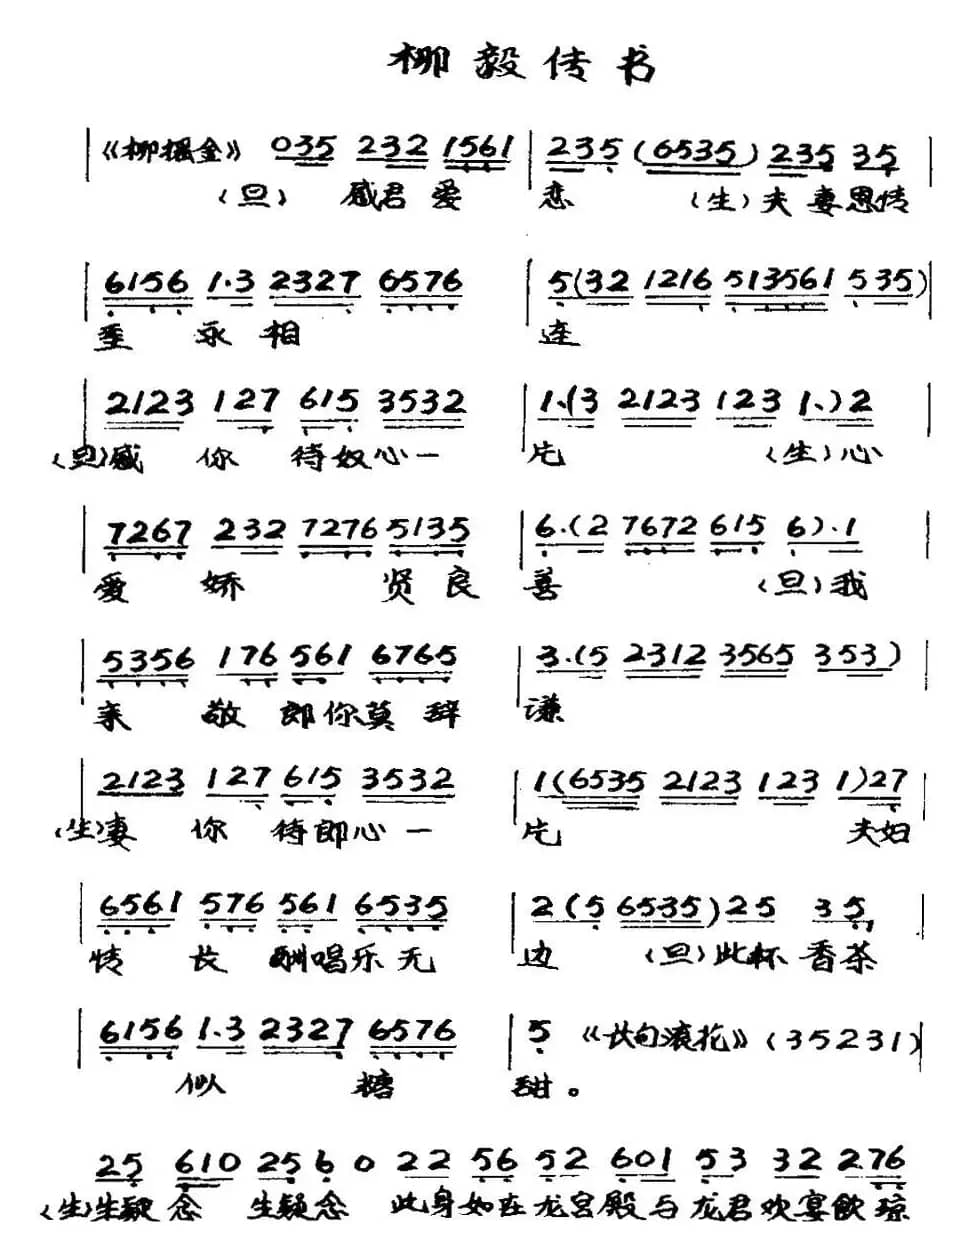 柳毅传书
《柳摇金》 035 232 1561 | 235 (6535) 235 35
(旦) 感君爱 恋 (生)夫妻恩情
6156 1·3 2327 6576 | 5(32 1216 513561 535)
至永相 连
2123 127 615 3532 | 1·(3 2123 123 1·)2
(旦)感你待奴心一 片 (生)心
7267 232 7276 5135 | 6·(2 7672 615 6)·1
爱娇贤良 善 (旦)我
5356 176 561 6765 | 3·(5 2312 3565 353)
亲敬郎你莫辞 谦
2123 127 615 3532 | 1(6535 2123 123 1)27
(生)妻你待郎心一 片 夫妇
6561 576 561 6535 | 2(5 6535)25 35,
情长酬唱乐无 边 (旦)此杯香茶
6156 1·3 2327 6576 | 5 《长句滚花》(35231)
似糖 甜。
25 610 25 6 0 22 56 52 601 53 32 2·76
(生)生疑念 生疑念 此身如在龙宫殿与龙君欢宴飲琼